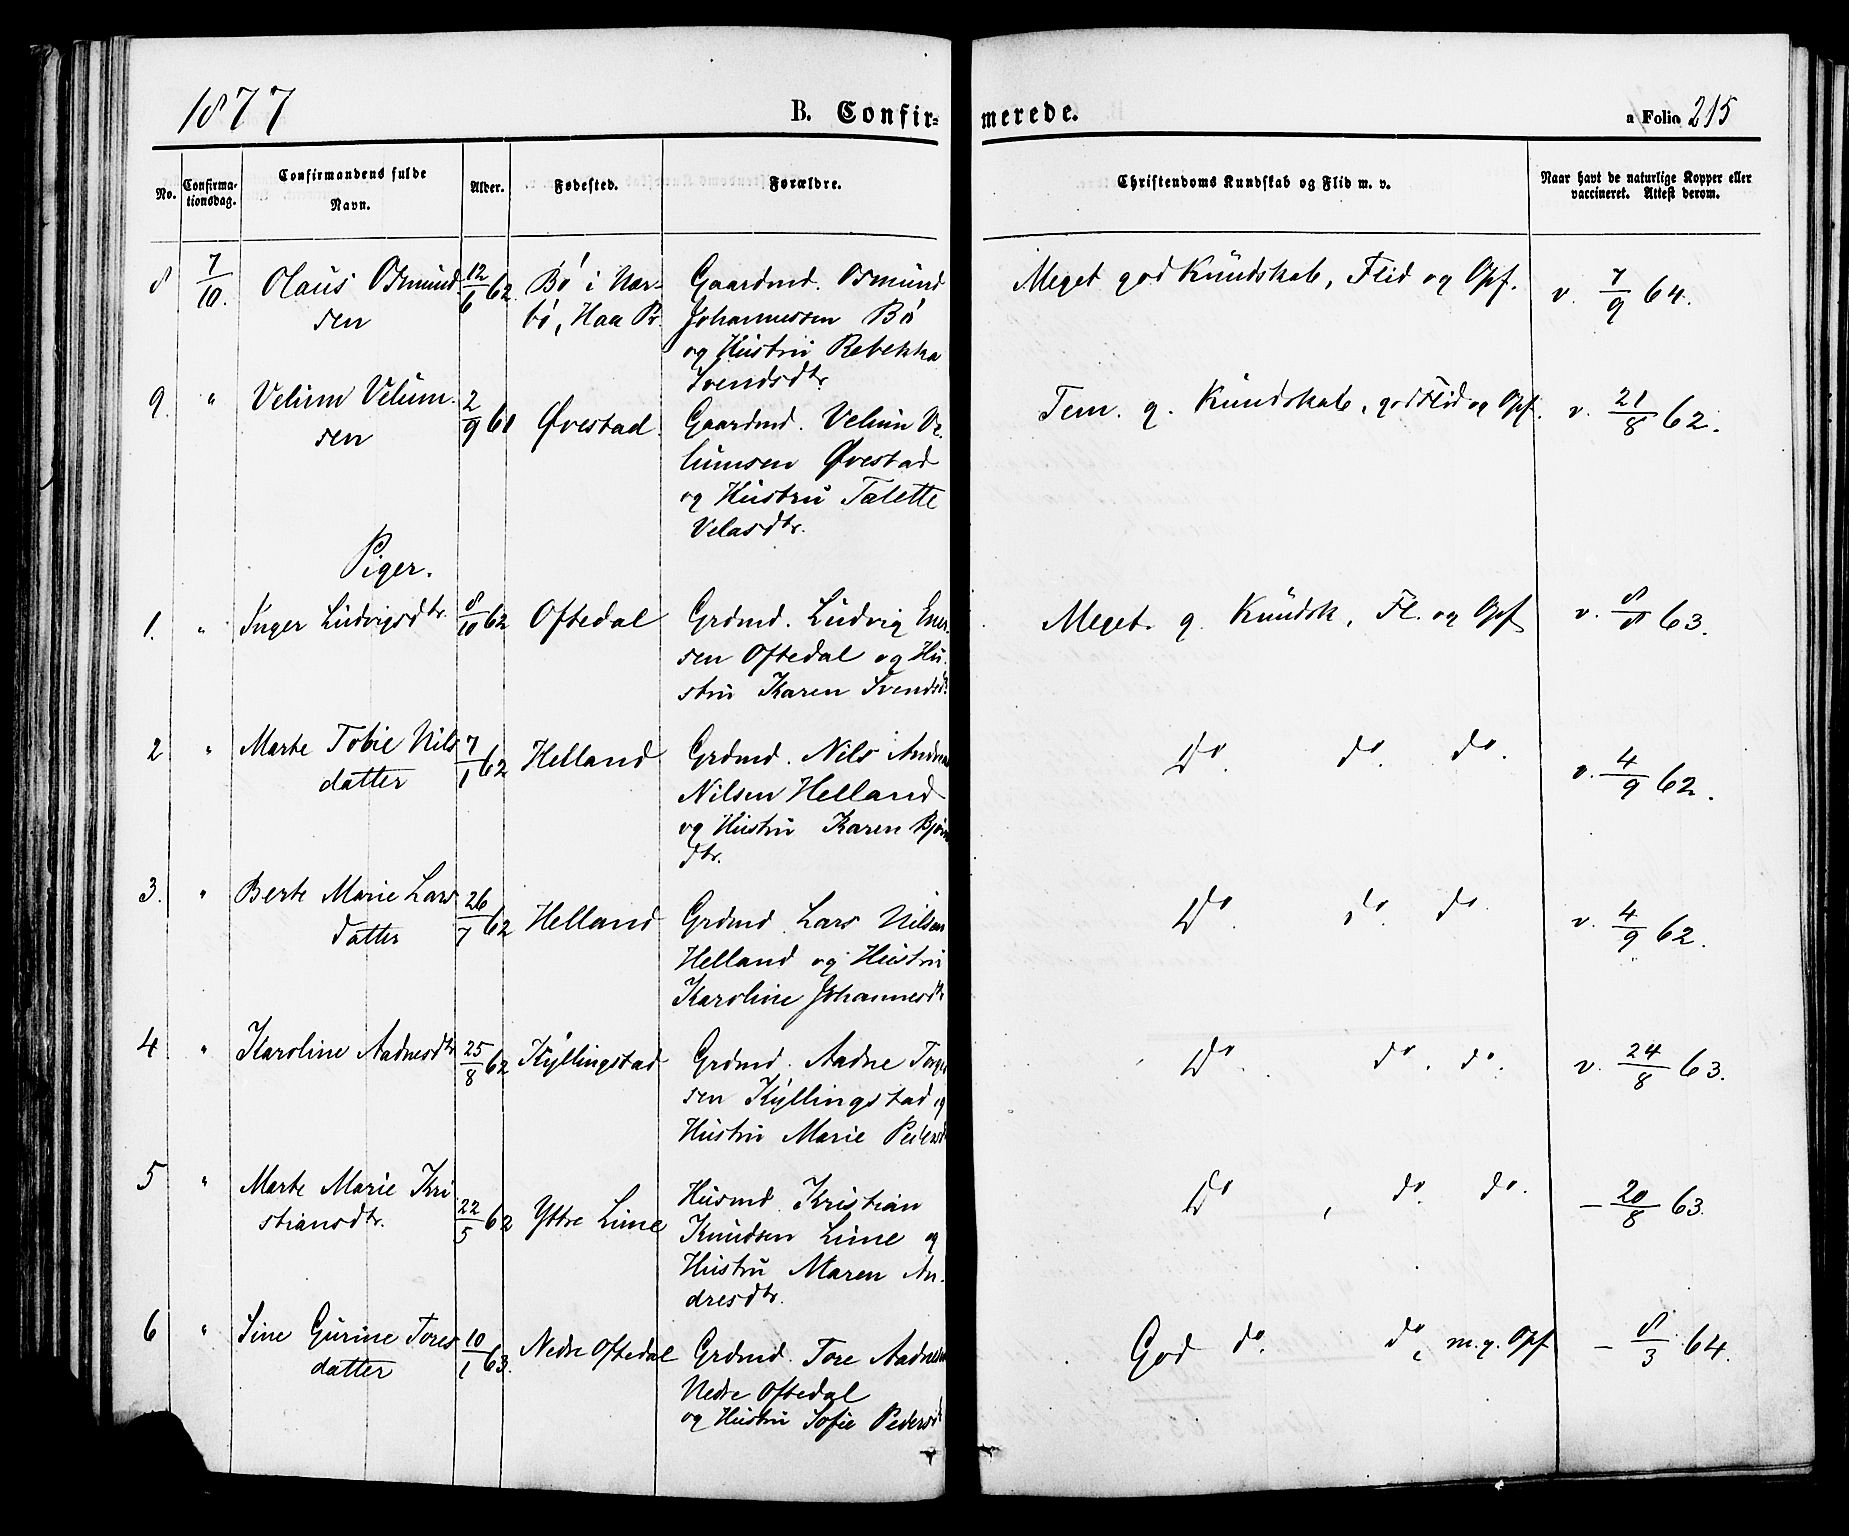 1877
B. Confir-
merede.
a Folio 215
No.
Confirma-
tionsdag.
Confirmandens fulde
Navn.
Alder.
Fødested.
Forældre.
Christendoms Kundskab og Flid m. v.
Naar havt de naturlige Kopper eller
vaccineret. Attest derom.
8 7/10. Olaus Osmund- 12/6 62. Bø i Nær- Gaardmd. Osmund Meget god Kundskab, Flid og Opf. v. 7/9 64.
sen bø, Haa Pr. Johannessen Bø
og Hustru Rebekka
Svendsdtr.
9. " Velum Velum- 2/9 61 Øvestad. Gaardmd. Velum Ve- Tem. g. Kundskab, god Flid og Opf. v. 21/8 62.
sen lumsen Øvestad
og Hustru Talette
Velasdtr.
Piger.
1. " Inger Ludvigsdtr. 8/10 62 Oftedal Grdmd. Ludvig Ener- Meget g. Kundsk, Fl. og Opf v. 8/8 63.
sen Oftedal og Hu-
stru Karen Svendsd
2 " Marte Tobie Nils 7/1 62 Helland Grdmd. Nils Andrea Do. do. do. v. 4/9 62.
datter Nilsen Helland
og Hustru Karen Bjørn
dtr.
3. " Berte Marie Lars 26/7 62 Helland Grdmd. Lars Nilsen Do. do. do. v. 4/9 62.
datter Helland og Hustru
Karoline Johannesdtr
4 " Karoline Aadnesdtr 25/8 62 Kyllingstad Grdmd. Aadne Torge Do. do. do. v. 24/8 63.
sen Kyllingstad og
Hustru Marie Pedersd
5 " Marte Marie Kri 22/5 62 Ytre Lime Husmd. Kristian Do , do. do. - 20/8 63.
stiansdtr. Knudsen Lime og
Hustru Maren An-
dresdtr.
6 " Sine Gurine Tores 10/1 63. Nedre Oftedal Grdmd. Tore Aadnesen God do. do, m.g. Opf - 8/3 64.
datter Nedre Oftedal
og Hustru Sofie Pedersd